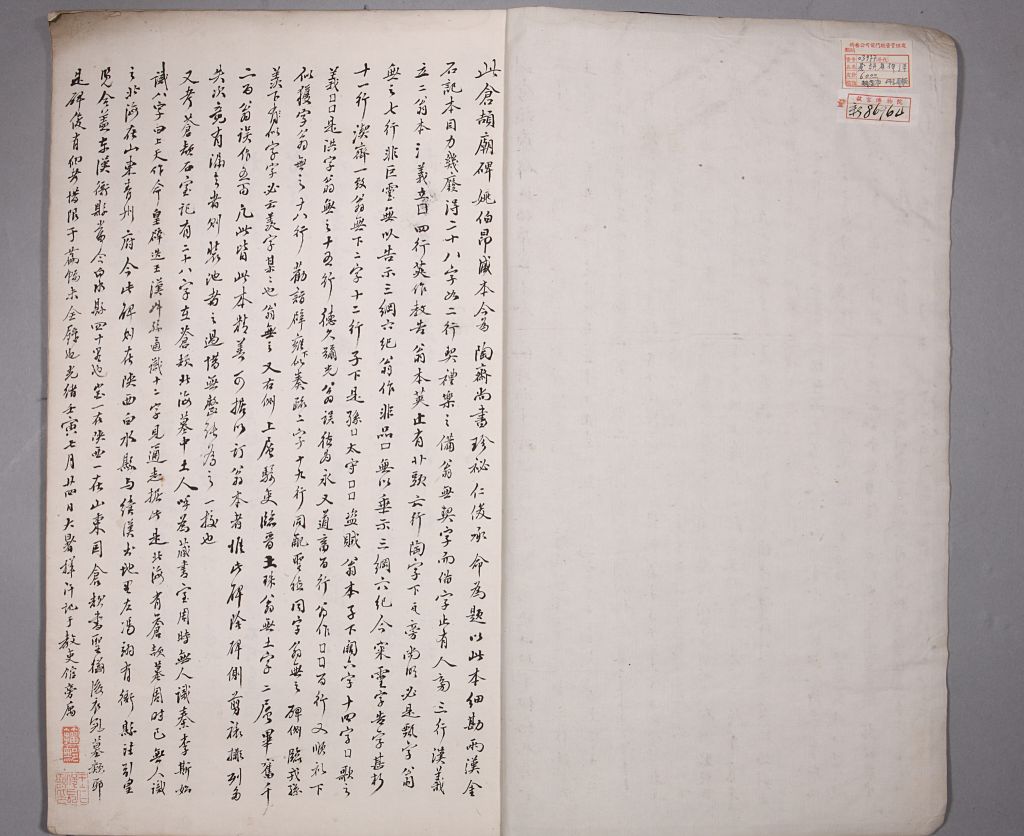 此倉頡廟碑姚伯昂藏本今為陶齋尚書珍祕仁俊承命為題以此本細勘兩漢金
石記本目力幾廢得二十八字如二行契禮樂之備翁無契字而備字止有人旁三行漢義
立二翁本之義立囗四行莢作教告翁本莢止有廿頭六行陶字下瓦旁尚明必是甄字翁
無之七行非巨靈無以告示三綱六紀翁作非品口無以垂示三綱六紀今案靈字告字甚析
義口口是洪字翁無之十五行德久彌光翁誤德為永又道畜百行翁作口口百行又順礼下
十一行漢齊一致翁無下二字十二行子下是孫口太守口口盜賊翁本子下闕六字十四字曰歌之
似獲字翁無之十八行勸詣辟雍似奏臨二字十九行同配聖德同字翁無之碑側臨我孫
羨下有似字字必云羨字某之也翁無之又右側上層騎吏臨晉王珠翁無土字二層畢奮千
二百翁誤作五百凡此皆此本精善可據以訂翁本者惟此碑陰碑側剪裱排列多
失次竟有漏者則裝池者之過惜無整紙為之一校也
又考蒼頡石室記有二十八字在蒼頡北海墓中土人呼為藏書室周時無人識秦李斯始
識八字曰上天作命皇辟迭王漢叔孫通識十二字見通志據此是北海有蒼頡墓周時已無人識
之北海在山東青州府今此碑則在陝西白水縣與續漢書地里左馮翊有衙縣注引皇
覽合蓋東漢衙縣當今白水縣四十里也室一在陝西一在山東同倉頡書聖猶後衣冠墓類耶
是碑復有仰考惜限于篇幅未全錄也光緒壬寅七月廿四日大暑揮汗記于教吏館旁屬